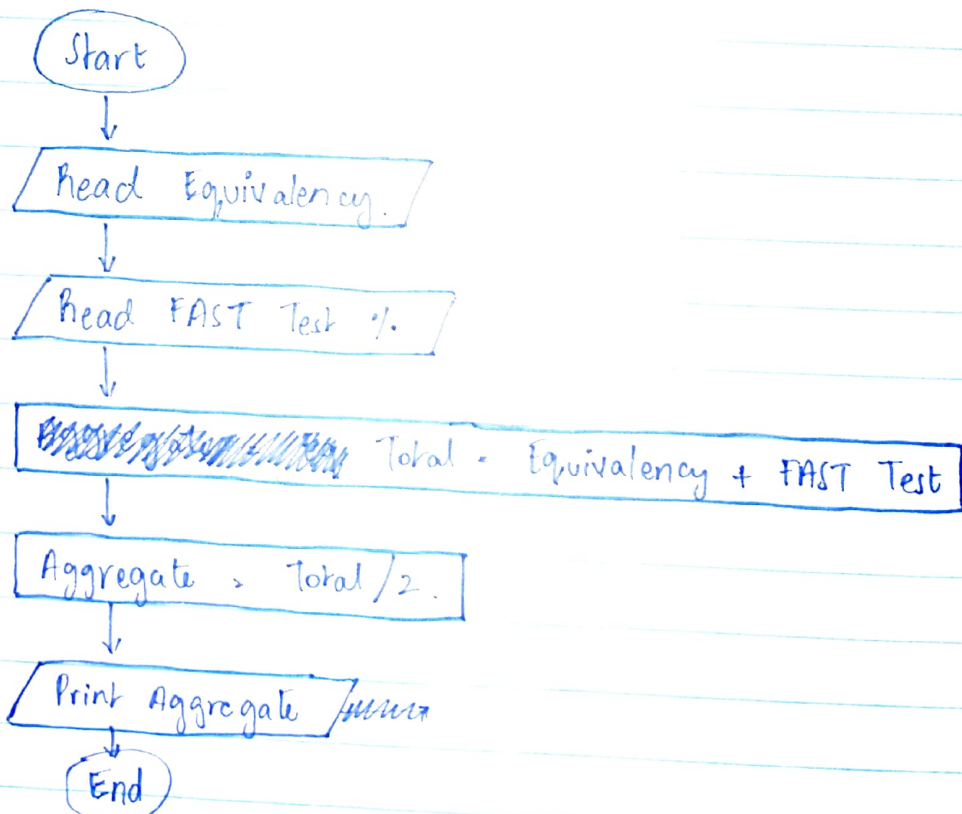 Start
Read Equivalency.
Read FAST Test %.
Total = Equivalency + FAST Test
Aggregate = Total/2.
Print Aggregate
End